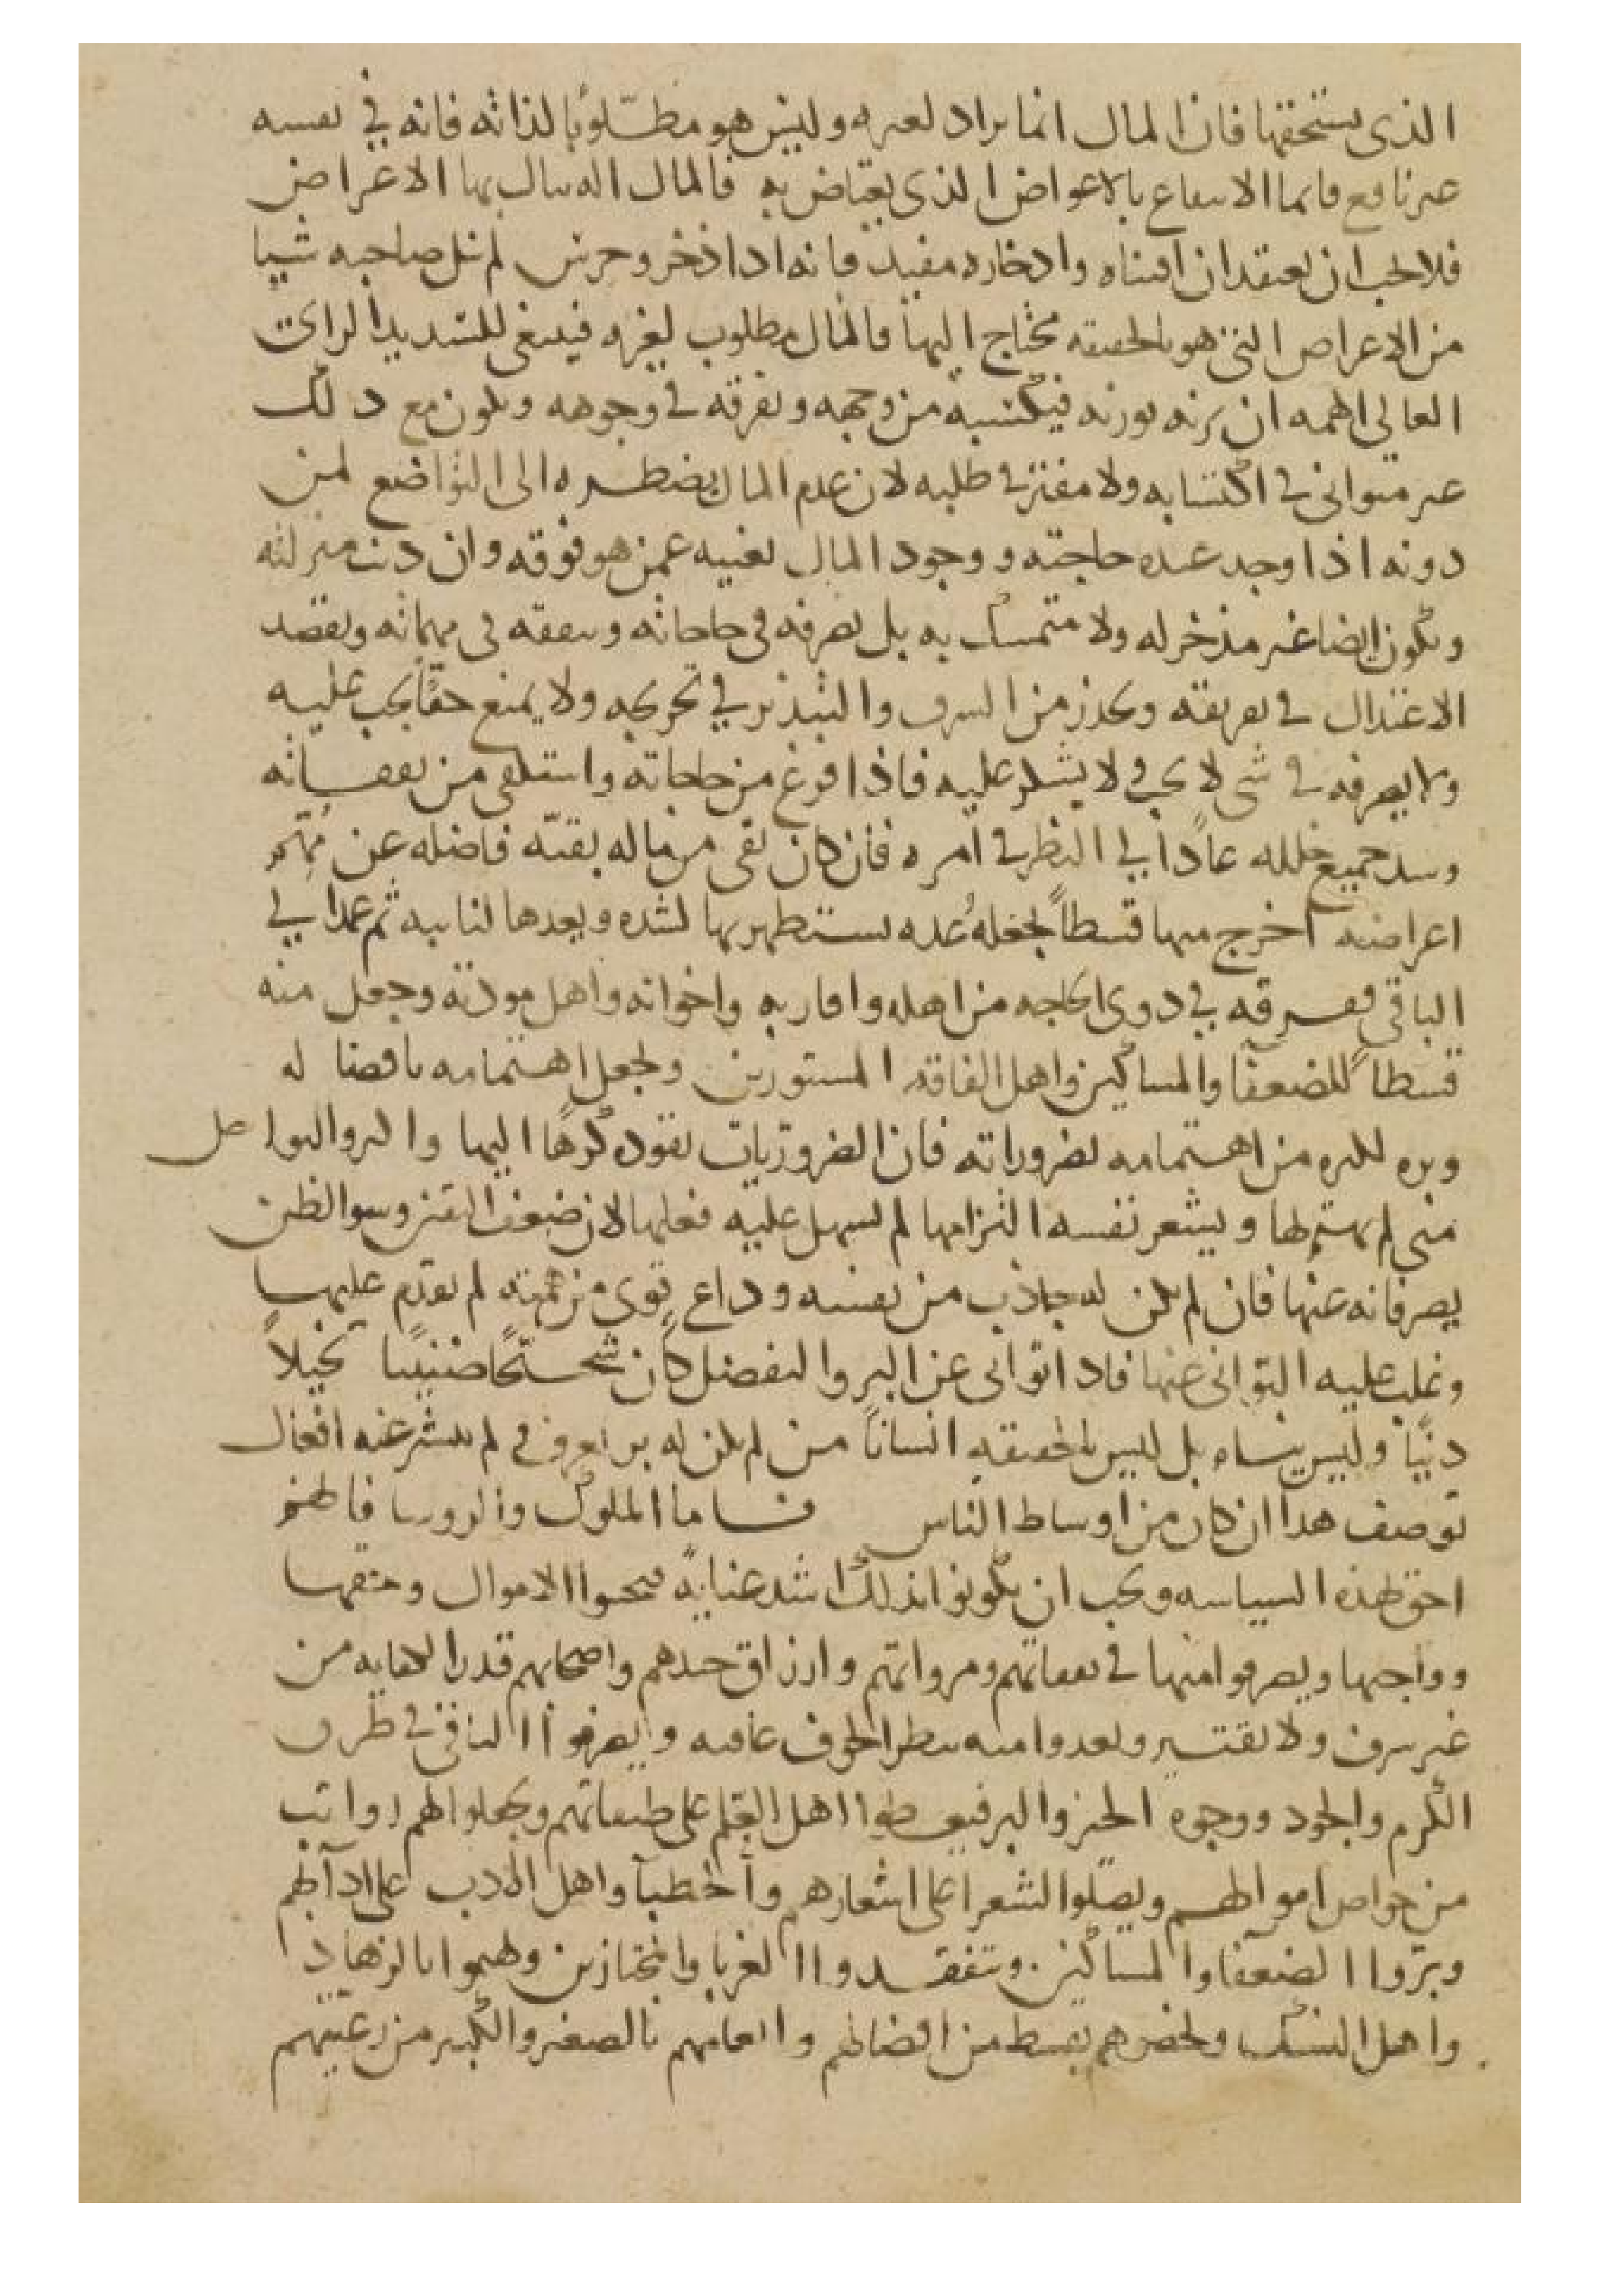 الذى يستحقها فان المال انما يراد لغيره وليس هو مطلوبًا لذاته فانه في نفسه
غير نافع فانما الانتفاع بالاعواض الذى يعتاض به فالمال اله ينال بها الاعراض
فلا يجب ان يعتقد ان اقتناه وادخاره مفيد فانه اذا ذخر وحرس لم ينل صاحبه شيا
من الاعراض التي هو بالحقيقه محتاج اليها فالمال مطلوب لغيره فينبغى للسديد الراى
العالي الهمه ان يزنه بوزنه فيكتسبه من وجهه وتفرقه في وجوهه ويكون مع ذلك
غير متوانى في اكتسابه ولا مفتر في طلبه لان عدم المال يضطره الى التواضع لمن
دونه اذا وجد عنده حاجته ووجود المال يغنيه عمن هو فوقه وان دنت منزلته
ويكون ايضا غير مذخر له ولا متمسك به بل يصرفه في حاجاته وينفقه في مهماته ويقصد
الاعتدال في تفريقه ويحذر من السرف والتبذير في تخريجه ولا يمنع حقًا يجب عليه
ولا يصرفه في شى لا يجب ولا يشكر عليه فاذا فرغ من حاجاته واستكفى من نفقاته
وسد جميع خلله عاد الي النظر في امره فان كان بقى من ماله بقيّه فاضله عن مهم
اعراضه اخرج منها قسطاً يجعله عُده يستظهر بها لشده ويعدها لنايبه ثم عمد الي
الباقي ففرقه في ذوى الحاجه من اهله واقاربه واخوانه واهل مودته وجعل منه
قسطاً للضعفآ والمساكين واهل الفاقه المستورين ويجعل اهتمامه بافضاله
وبره اكثر من اهتمامه بضروراته فان الضروريات تقوده كرهًا اليها والبر والنوافل
متى لم يهتم لها ويشعر نفسه التزامها لم يسهل عليه فعلها لان ضعف اليقين وسوالظن
يصرفانه عنها فان لم يكن له جاذب من نفسه وداع قوى من همته لم يقدم عليها
وغلب عليه التوانى عنها فاذا توانى عن البر والتفضل كان شحيحًا ضنينًا بخيلاً
دنيًا وليس ينساه بل ليس بالحقيقه انساناً من لم يكن له بر يعرف في لم ينشر عنه افعال
توصف هذا ان كان من اوساط الناس فاما الملوك والروسا فانهم
احق بهذه السياسه ويجب ان يكونوا بذلك اشد عنايةً فيجبوا الاموال وحقها
وواجبها ويصرفوا منها في نفقاتهم ومرواتهم وارزاق جندهم واصحابهم قدر الكفايه من
غير سرف ولا تقتير ويعدوا منه شطرا لخوف عاقبه ويصرفوا الباقى في طرق
الكرم والجود ووجوه الخير والبر فيعطوا اهل العلم على طبقاتهم ويجعلوا لهم رواتب
من خواص اموالهم ويصلوا الشعرا على اشعارهم والخطبآ واهل الادب على ادابهم
ويبرّوا الضعفآ والمساكين ويتفقدوا الغربا والمجتازين ويهتموا بالزهاد
واهل النسك ويخصوهم بقسط من افضالهم وانعامهم بالصغير والكبير من رعيتهم